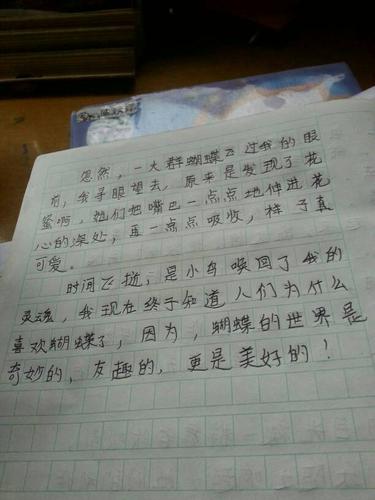 忽然，一大群蝴蝶飞过我的眼
前，我寻眼望去，原来是发现了花
蜜啊，她们把嘴巴一点点地伸进花
心的深处，再一点点吸收，样子真
可爱。
时间飞逝，是小鸟唤回了我的
灵魂，我现在终于知道人们为什么
喜欢蝴蝶了，因为，蝴蝶的世界是
奇妙的，友趣的，更是美好的！